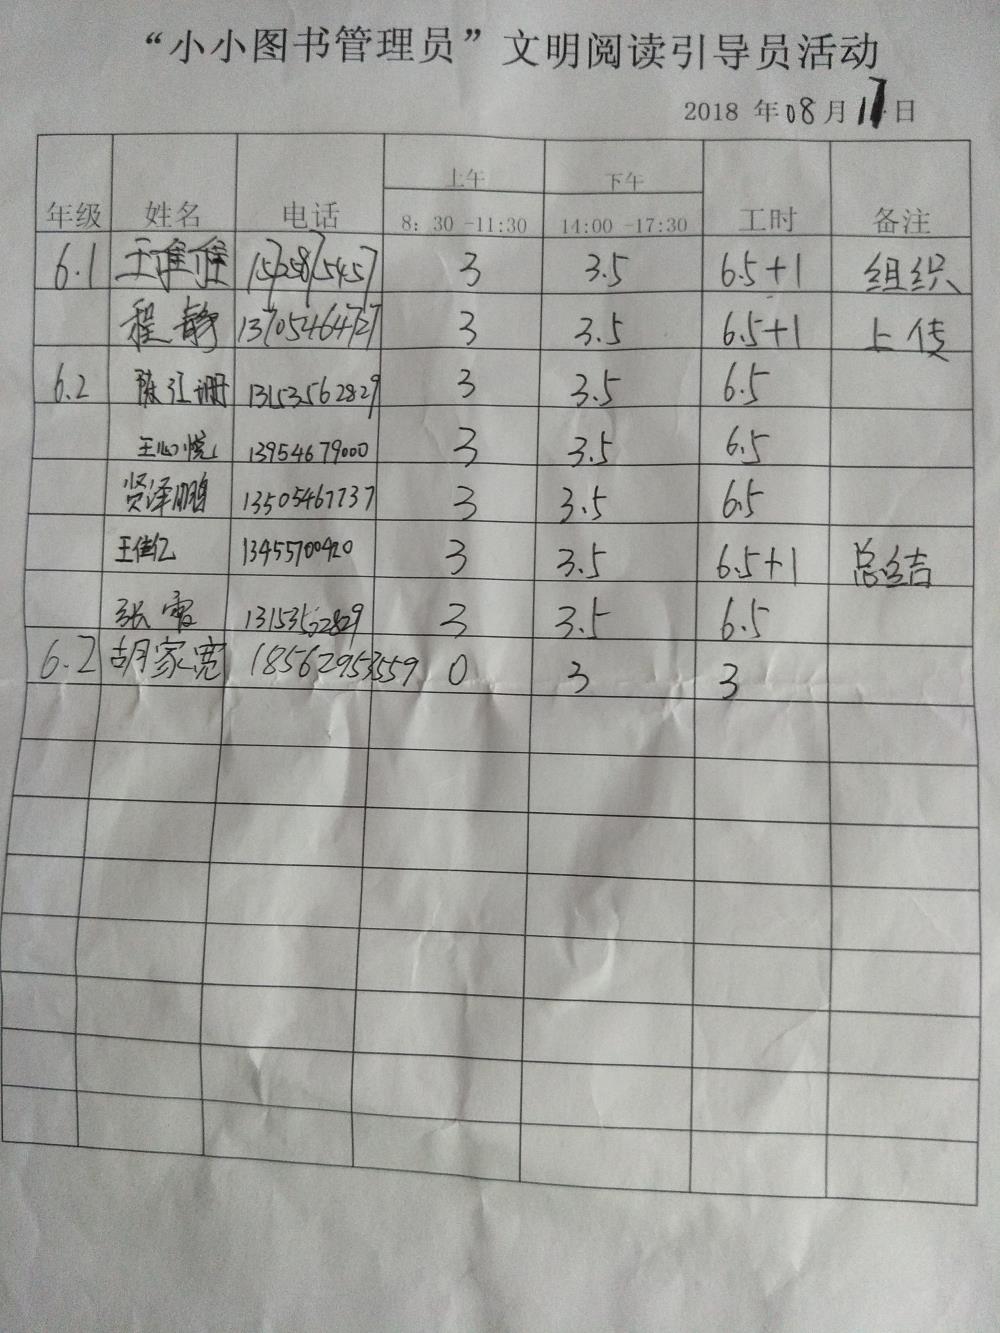 “小小图书管理员”文明阅读引导员活动
2018 年 08 月 17 日
年级 姓名 电话 上午 8：30-11:30 下午 14:00-17:30 工时 备注
6.1 3 3.5 6.5+1 组织
程静 13705464727 3 3.5 6.5+1 上传
6.2 13153562829 3 3.5 6.5
王心悦 13954679000 3 3.5 6.5
贤泽鹏 13505467737 3 3.5 6.5
王佳亿 13455700420 3 3.5 6.5+1 总结
张雷 3 3.5 6.5
6.2 胡家宽 18562953559 0 3 3